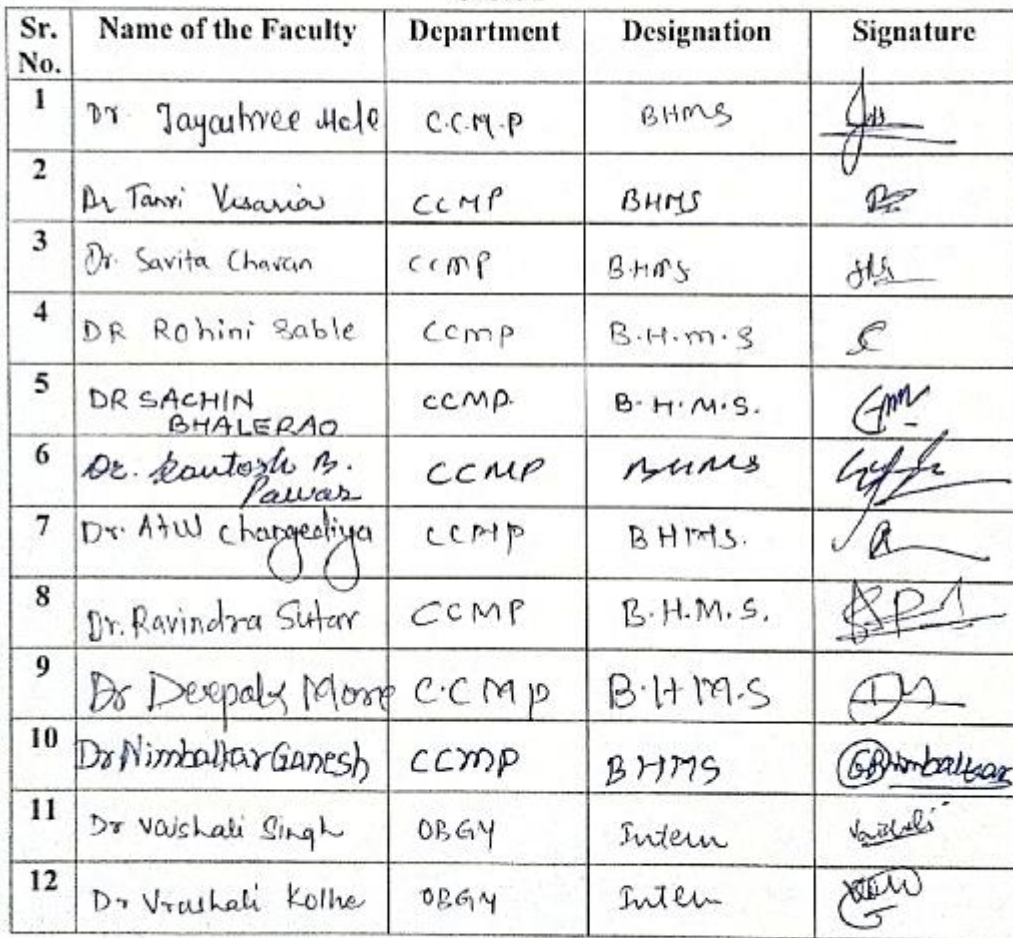 Sr. No. Name of the Faculty Department Designation Signature
1 Dr Jayashree Mole C.C.M.P BHMS
2 Dr Tanvi Visaria CCMP BHMS
3 Dr. Savita Chavan CCMP B.HMS
4 DR Rohini Sable CCMP B.H.M.S
5 DR SACHIN BHALERAO CCMP. B.H.M.S.
6 Dr. Santosh B. Pawar CCMP BHMS
7 Dr. Atul CCMP BHMS.
8 Dr. Ravindra Sutar CCMP B.H.M.S.
9 Dr Deepaly More C.C.M.P B.H.M.S
10 Dr Nimbalkar Ganesh CCMP BHMS GBNimbalkar
11 Dr Vaishali Singh OBGY Intern Vaishali
12 Dr Vrushali Kolhe OBGY Intern